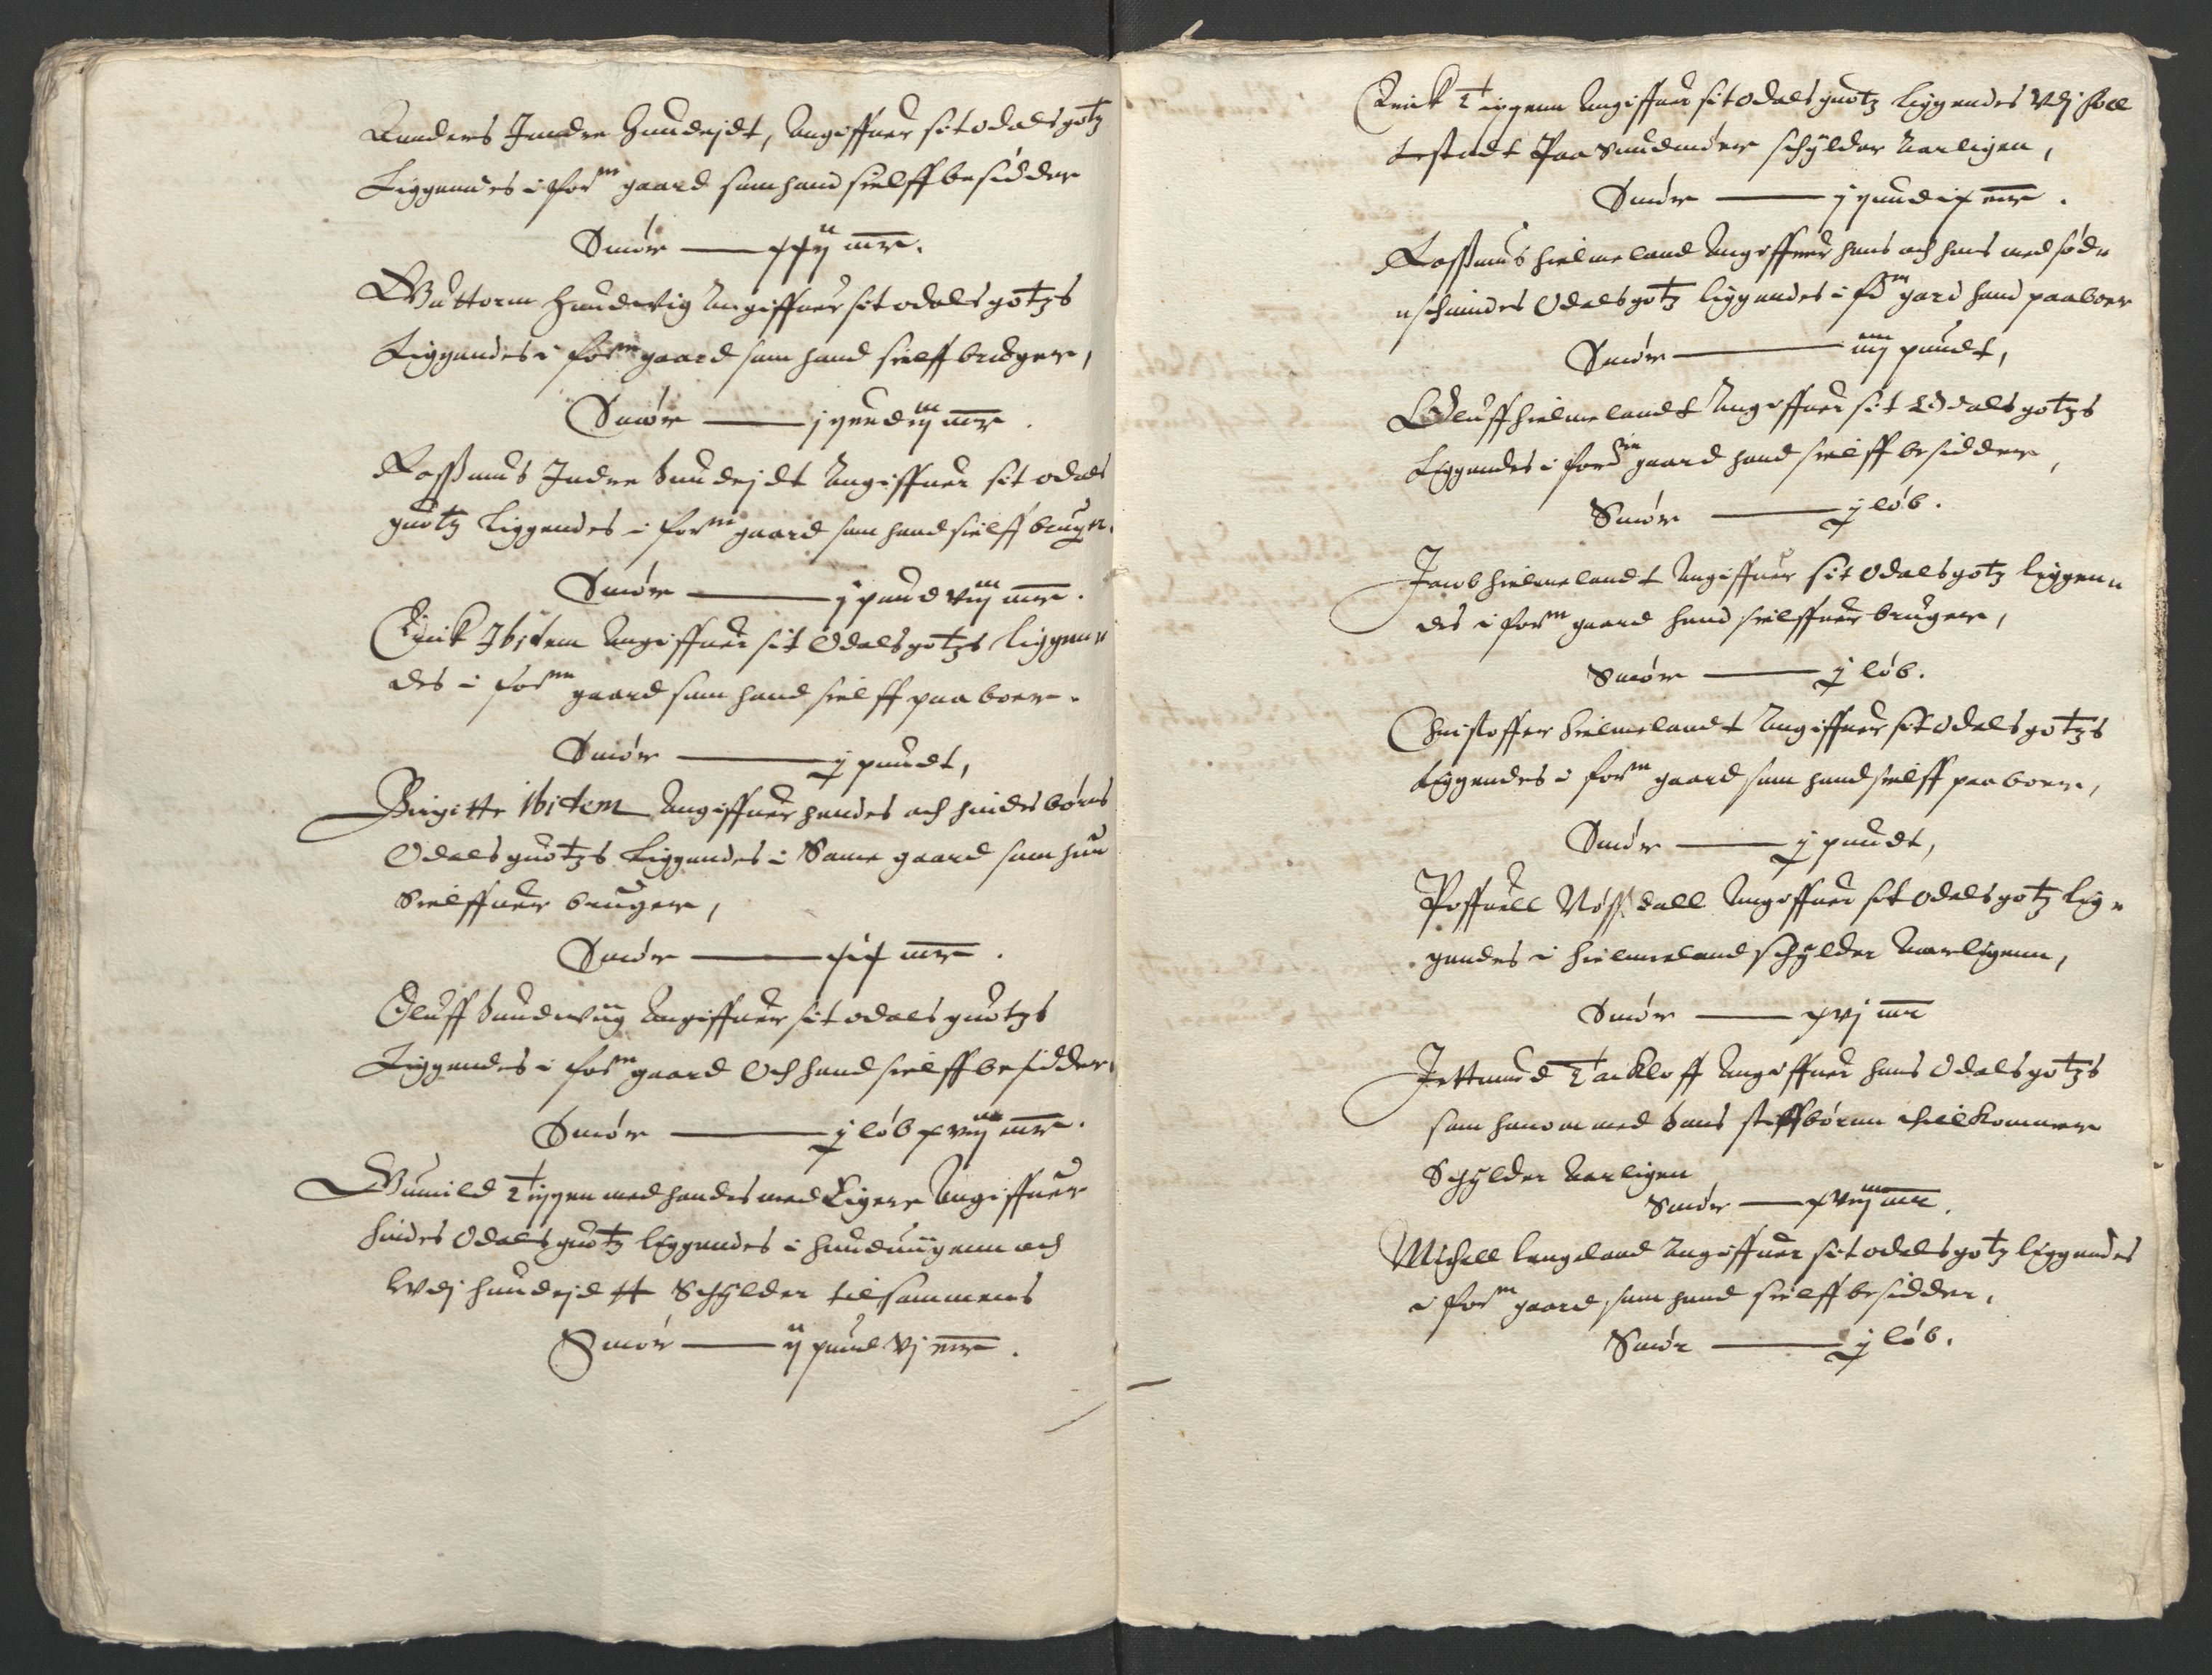 Anders Jndre Hundejdt, Angiffuer sit odals gotz
Liggendes i for^m gaard som hand sielff besidder
Smør — xxij mrk.
Guttorm Hundwig Angiffuer sit odels gotzs
Liggendes i for^m gaard som hand sielff bruger,
Smør — j pund iij mrk.
Rassmus Jndre Hundejdt Angiffuer sit odals
guotz Liggendes i for^m gaard som hand sielff bruger.
Smør — j pund viij mrk.
Erick Jbidem Angiffuer sit Odals gotzs liggenn
des i for^m gaard som hand sielff paa boer.
Smør — j pundt,
Birgitte ibidem Angiffuer hendes och hindes børns
Odals guotzs Liggendes i Same gaard som hun
Sielffuer bruger,
Smør — xix mrk.
Oluff Hundwiig Angiffuer sit odals guotzs
Liggendes i for^m gaard Och hand sielff besidder,
Smør — j løb xviij mrk.
Gunnild Tiggen med hendes med Eigere Angiffuer
hindes Odals guotz liggendes i Hunduigenn och
Wdj Hundejdtt Schylder tilsammens
Smør — ij pund vj mrk.
Erick Tiggenn Angiffuer sit odals guotz liggendes Vdj Holl
lestadt Paa Sundmøer schylder Aarligen,
Smør — j pund ix mrk.
Rassmus Hielmeland Angiffuer hans och hans med sød
schindes Odals gotz liggendes i for^m gard hand paaboer
Smør — iiij pundt,
Oluff Hielmelandt Angiffuer sit Odals gotzs
Liggendes i for^m gaard hand sielff besidder,
Smør — j løb.
Jacob Hielmelandt Angiffuer sit Odals gotz liggenn
des i for^m gaard hand sielffuer bruger,
Smør — j løb.
Christoffer Hielmelandt Angiffuer sit Odels gotzs
Liggendes i for^m gaard som hand sielff paa boer,
Smør — j pundt,
Poffuell Nøssdall Angiffuer sit Odals gotz lig
gendes i Hielmeland schylder Aarligenn,
Smør — xvj mrk
Jettmund Tackloff Angiffuer hans Odals gotzs
som hanom med Hans stiffbørnn thilkommer
Schylder Aarligen
Smør — xviij mrk.
Michell Langeland Angiffuer sit odals gotz liggendes
i for^m gaard som hand sielff besidder,
Smør — j løb.